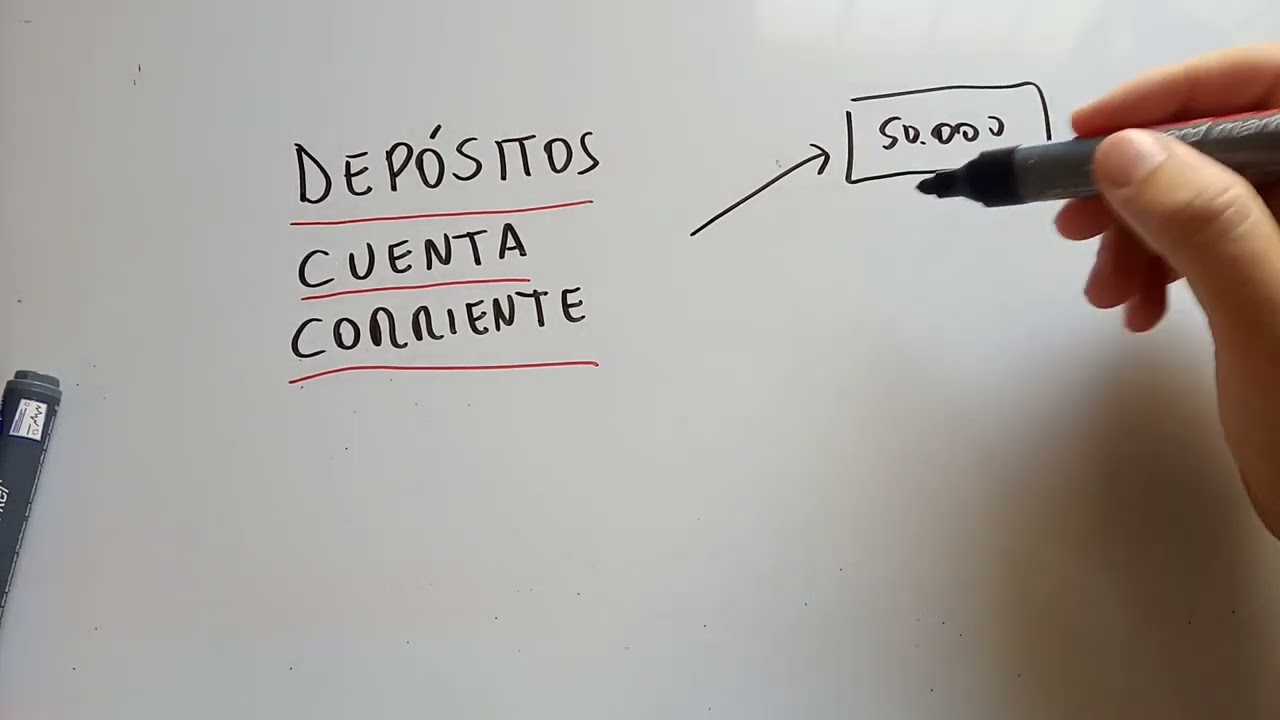 DEPÓSITOS
CUENTA
CORRIENTE
50.000